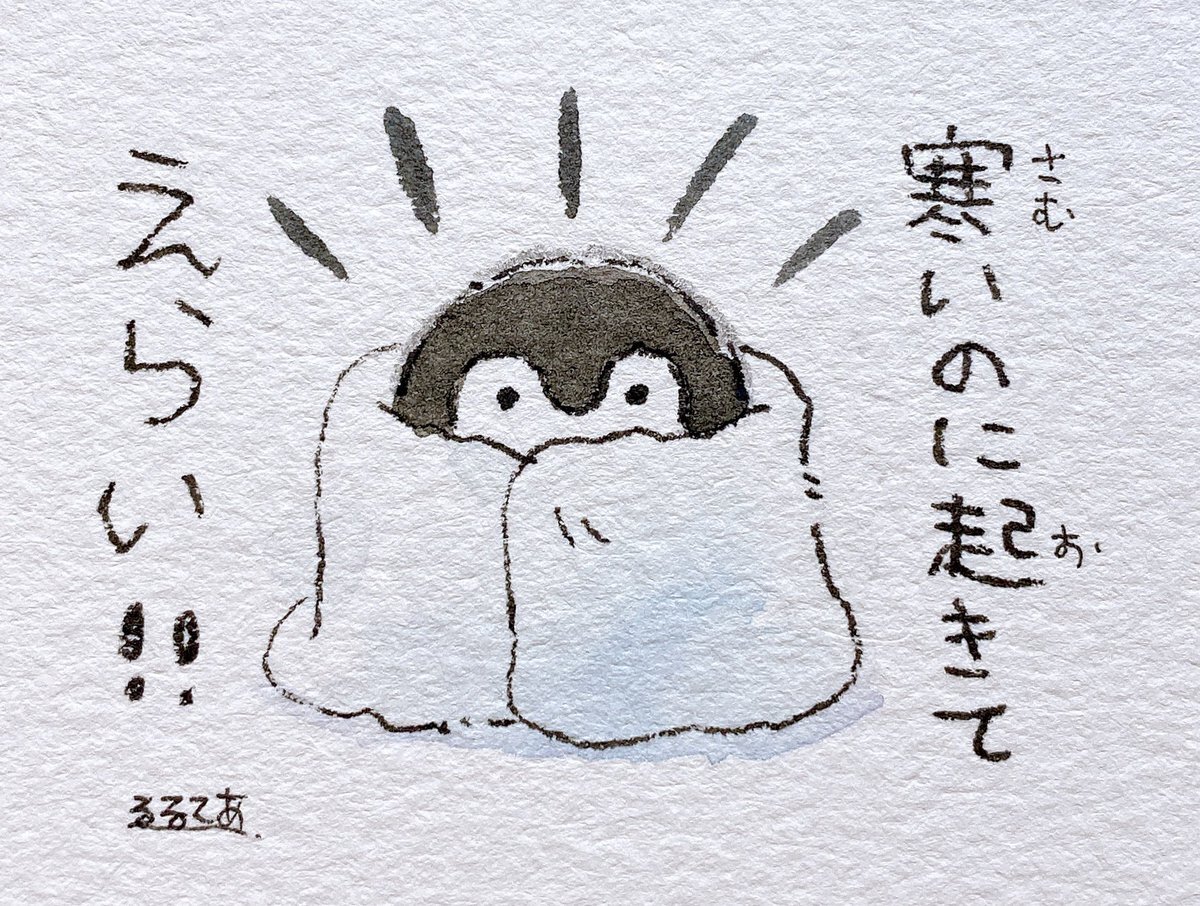 寒いのに起きて
さむ
お
えらい!!
るるてあ